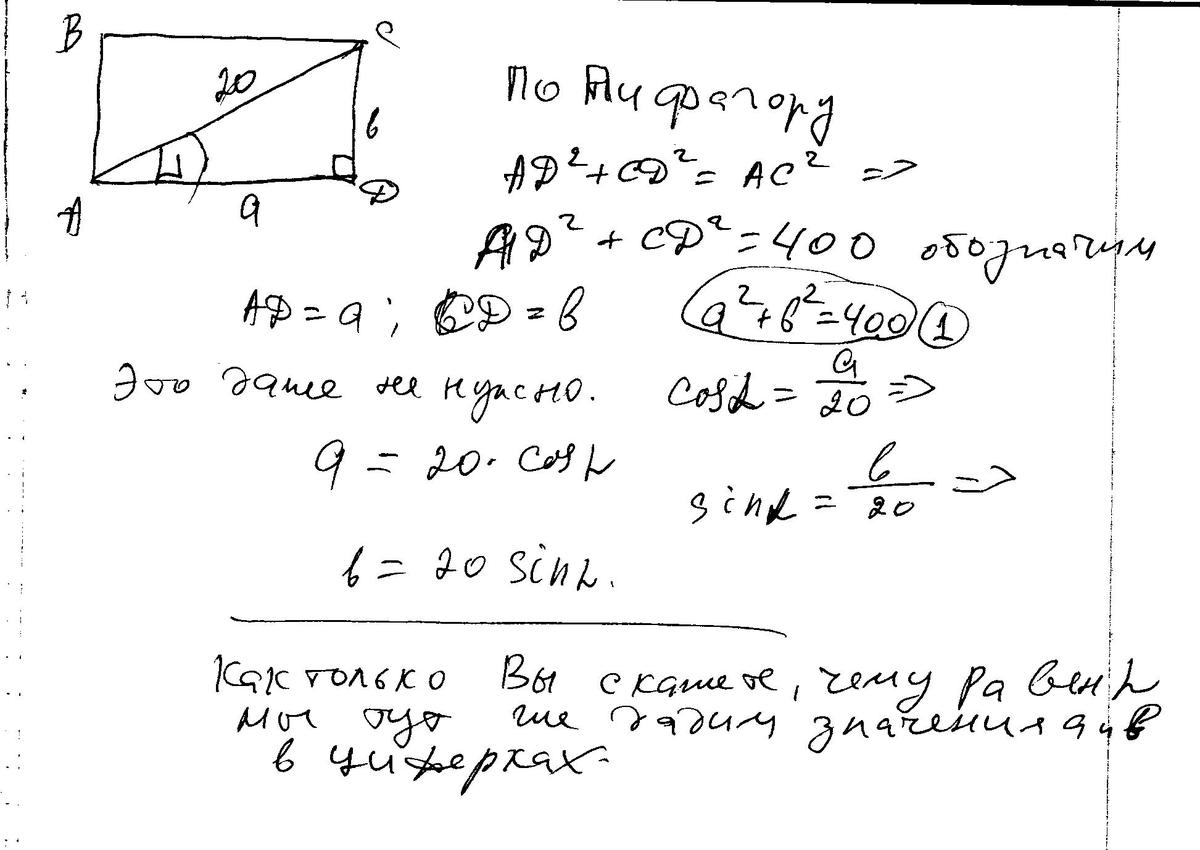 B
C
20
в
A
a
D
По Пифагору
AD² + CD² = AC² =>
AD² + CD² = 400 обозначим
AD = a; CD = в a² + в² = 400 ①
Это даже не нужно. cosα = a/20 =>
a = 20 · cosα
sinα = в/20 =>
в = 20 sinα.
Как только Вы скажете, чему равен α
мы тут же дадим значения a и в
в циферках.